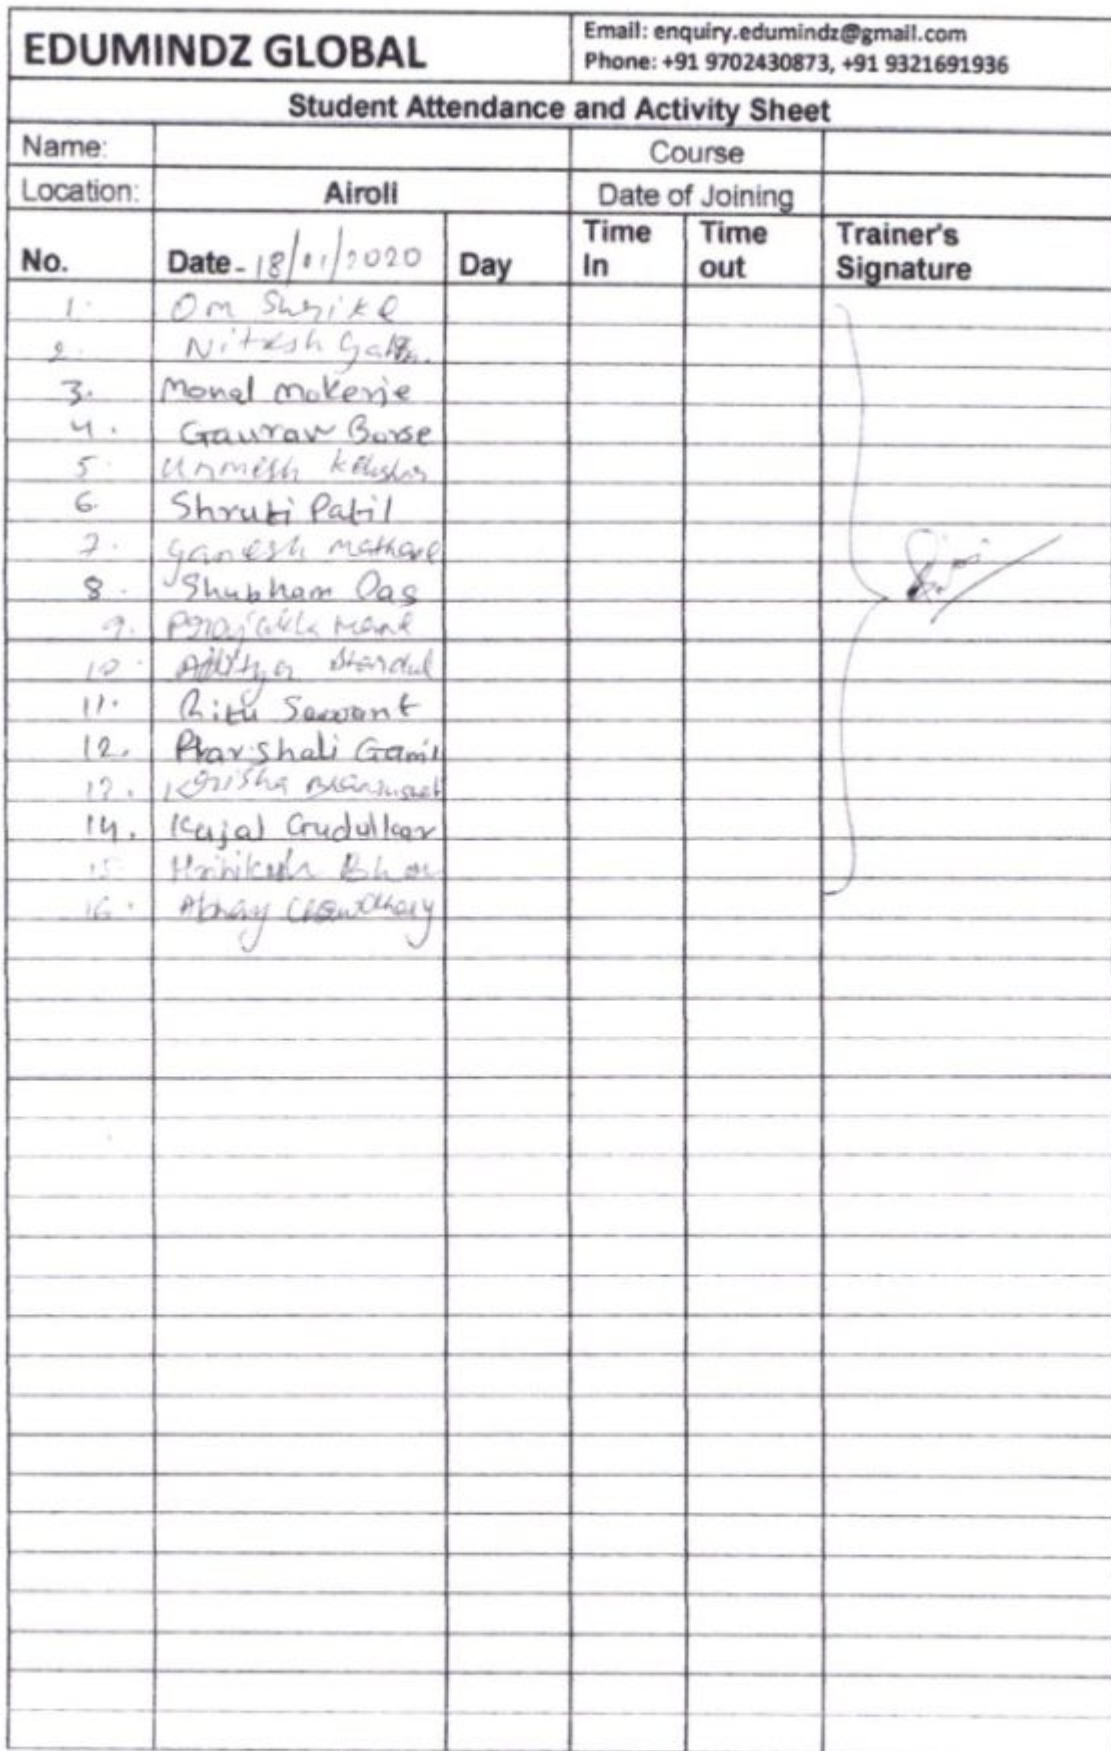 EDUMINDZ GLOBAL
Email: enquiry.edumindz@gmail.com
Phone: +91 9702430873, +91 9321691936
Student Attendance and Activity Sheet
Name: Course
Location: Airoli Date of Joining
No. Date - 18/01/2020 Day Time In Time out Trainer's Signature
1. Om
2. Nitesh
3. Monal Mokerje
4. Gaurav Borse
5. Unmesh
6. Shruti Patil
7. Ganesh
8. Shubham Das
9.
10. Aditya
11. Ritu Sawant
12. Gami
13. Krisha
14. Kajal Gudulkar
15.
16. Abhay Chowdhary